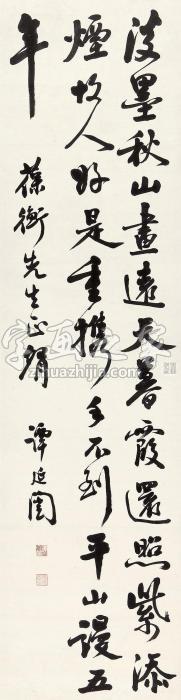 淡墨秋山畫遠天暮霞還照紫添
煙故人好是重攜手不到平山謾五
年
葆衡先生正腕
譚延闓
字画之家
zihuazhijia.com